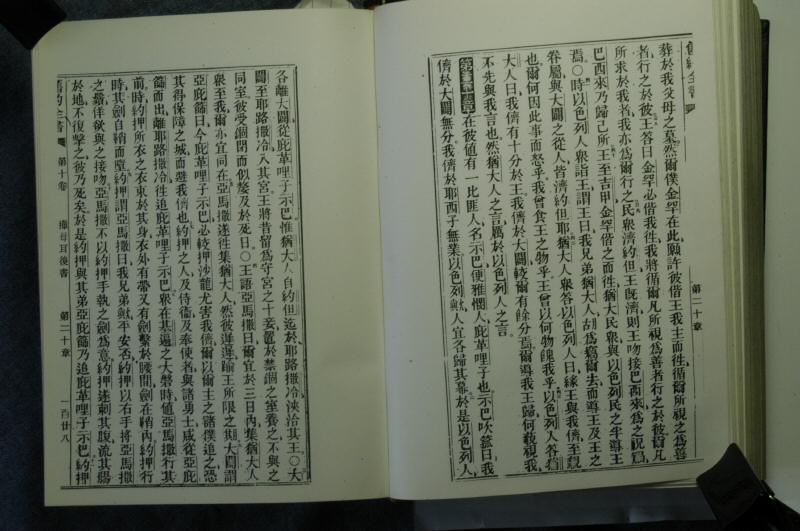 舊約全書 第二十章
葬於我父母之墓、然爾僕金罕在此、願許彼偕王我主而徃、循爾所視之爲善
者、行之於彼、王答曰、金罕必偕我徃、我將循爾凡所視爲善者、行之於彼、爾凡
所求於我者、我亦爲爾行之、民衆濟約但、王旣濟、則王吻接巴西來、爲之祝焉、
巴西來乃歸己所、王至吉甲、金罕偕之而徃、猶大民衆、與以色列民之半、導王
焉○時以色列人衆詣王、謂王曰、我兄弟猶大人、胡爲竊爾去、而導王及王之
眷屬、與大闢之從人、皆濟約但、耶猶大人衆答以色列人曰、緣王與我儕至親
也、爾何因此事而怒乎、我曾食王之物乎、王曾以何物餽我乎、以色列人答猶
大人曰、我儕有十分於王、我儕於大闢較爾有餘分焉、爾導我王歸、何藐視我
不先與我言也、然猶大人之言、厲於以色列人之言、
在彼値有一比匪人、名示巴、便雅憫人、庇革哩子也、示巴吹篍曰、我
儕於大闢無分、我儕於耶西子無業、以色列歟、人宜各歸其幕、於是以色列人
各離大闢、從庇革哩子示巴、惟猶大人自約但、迄於耶路撒冷、浹洽其王○大
闢至耶路撒冷、入其宮、王將昔留爲守宮之十妾、置於禁錮之室、養之、不與之
同室、彼受錮閉而似嫠、及於死日○王語亞馬撒曰、爾宜於三日內、集猶大人
衆至我、爾亦宜同在、亞馬撒遂徃集猶大人、然彼遲遲踰王所限之期、大闢謂
亞庇篩曰、今庇革哩子示巴、必較押沙龍尤害我儕、爾以爾主之諸僕追之、恐
其得保障之城、而避我儕也、約押之人、及侍衞、及奉使者、與諸勇士、咸從亞庇
篩而出、離耶路撒冷徃追庇革哩子示巴、衆在基遍之大磐時、値亞馬撒行其
前、時約押所衣之衣、束於其身、衣外有帶、又有劍繫於腰間、劍在鞘內、約押行
時、其劍自鞘而墮、約押謂亞馬撒曰、我兄弟歟、平安否、約押以右手將亞馬撒
之鬚、佯欲與之接吻、亞馬撒不以約押手執之劍爲意、約押遂刺其腹、流其腸
於地、不復擊之、彼乃死矣、於是約押與其弟亞庇篩、乃追庇革哩子示巴、約押
舊約全書 第十卷 撒母耳後書 第二十章 一百廿八